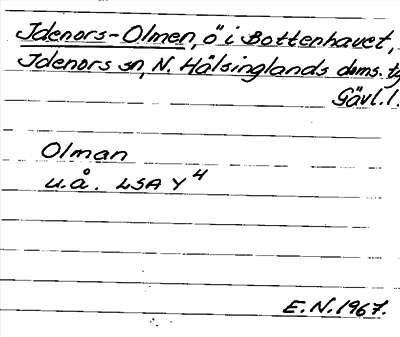 Idenors-Olmen, ö i Bottenhavet,
Idenors sn, N. Hälsinglands doms. tg
Gävl. l.
Olman
u.å. LSA Y⁴
E.N. 1967.